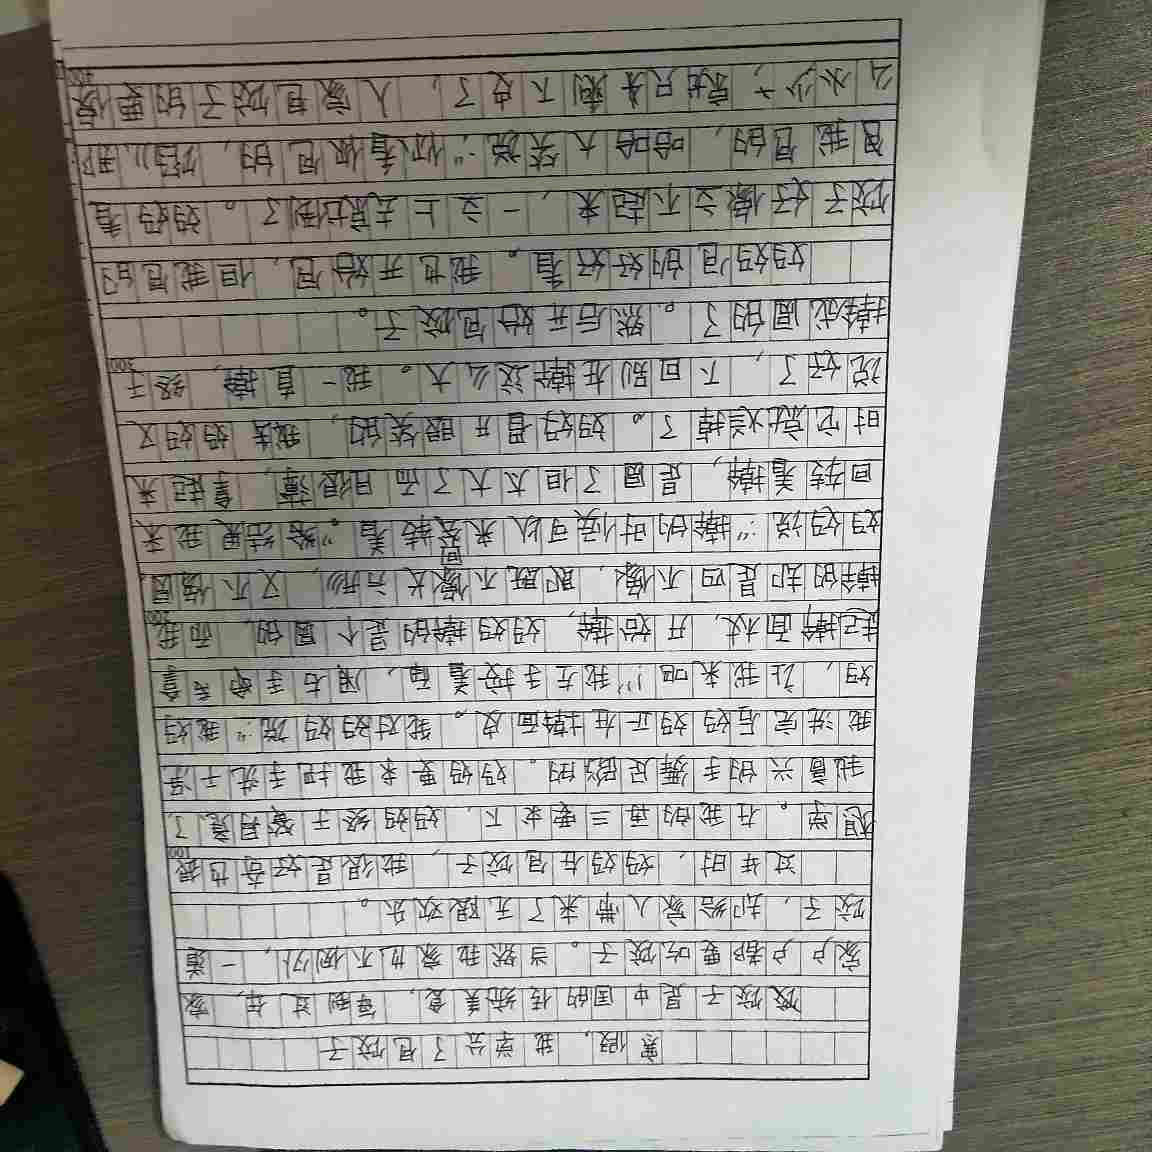 寒假，我学会了包饺子
饺子是中国的传统美食，每到过年，家
家户户都要吃饺子。当然我家也不例外，一道
饺子，却给家人带来了无限欢乐。
过年时，妈妈在包饺子，我很是好奇也很
100
想学。在我的再三要求下，妈妈终于答应了
我高兴的手舞足蹈的。妈妈要求我把手洗干净
我洗完后妈妈正在擀面皮。我对妈妈说：“妈妈
妈，让我来吧！”我左手按着面，用右手拿
起擀面杖，开始擀，妈妈擀的是个圆的，而我
200
擀的却是四不像，即既不像长方形，又不像圆
妈妈说：“擀的时候可以来回转着。”给结果我来
回转着擀，是圆了但太大了而且很薄，拿起来
时它就烂掉了。妈妈眉开眼笑的，我 妈妈又
说好了，下回别在擀这么大。我一直擀，终于
300
擀成圆的了。然后开始包饺子。
妈妈包的好好看。我也开始包，但我包的
饺子好像立不起来，一立上去就倒了。妈妈看
见我包的，哈哈大笑说：“你看你包的，馅儿那
么小少，就只来剩下皮了，人家包饺子的要馅
400